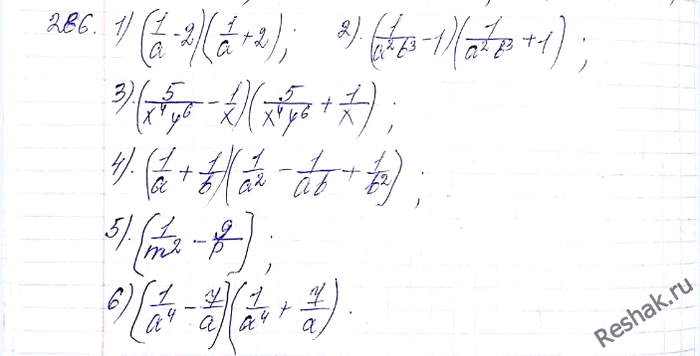 286. 1) (1/a - 2)(1/a + 2); 2). (1/a²b³ - 1)(1/a²b³ + 1);
3). (5/x⁴y⁶ - 1/x)(5/x⁴y⁶ + 1/x);
4). (1/a + 1/b)(1/a² - 1/ab + 1/b²);
5). (1/m² - 9/p);
6) (1/a⁴ - 7/a)(1/a⁴ + 7/a).
Reshak.ru